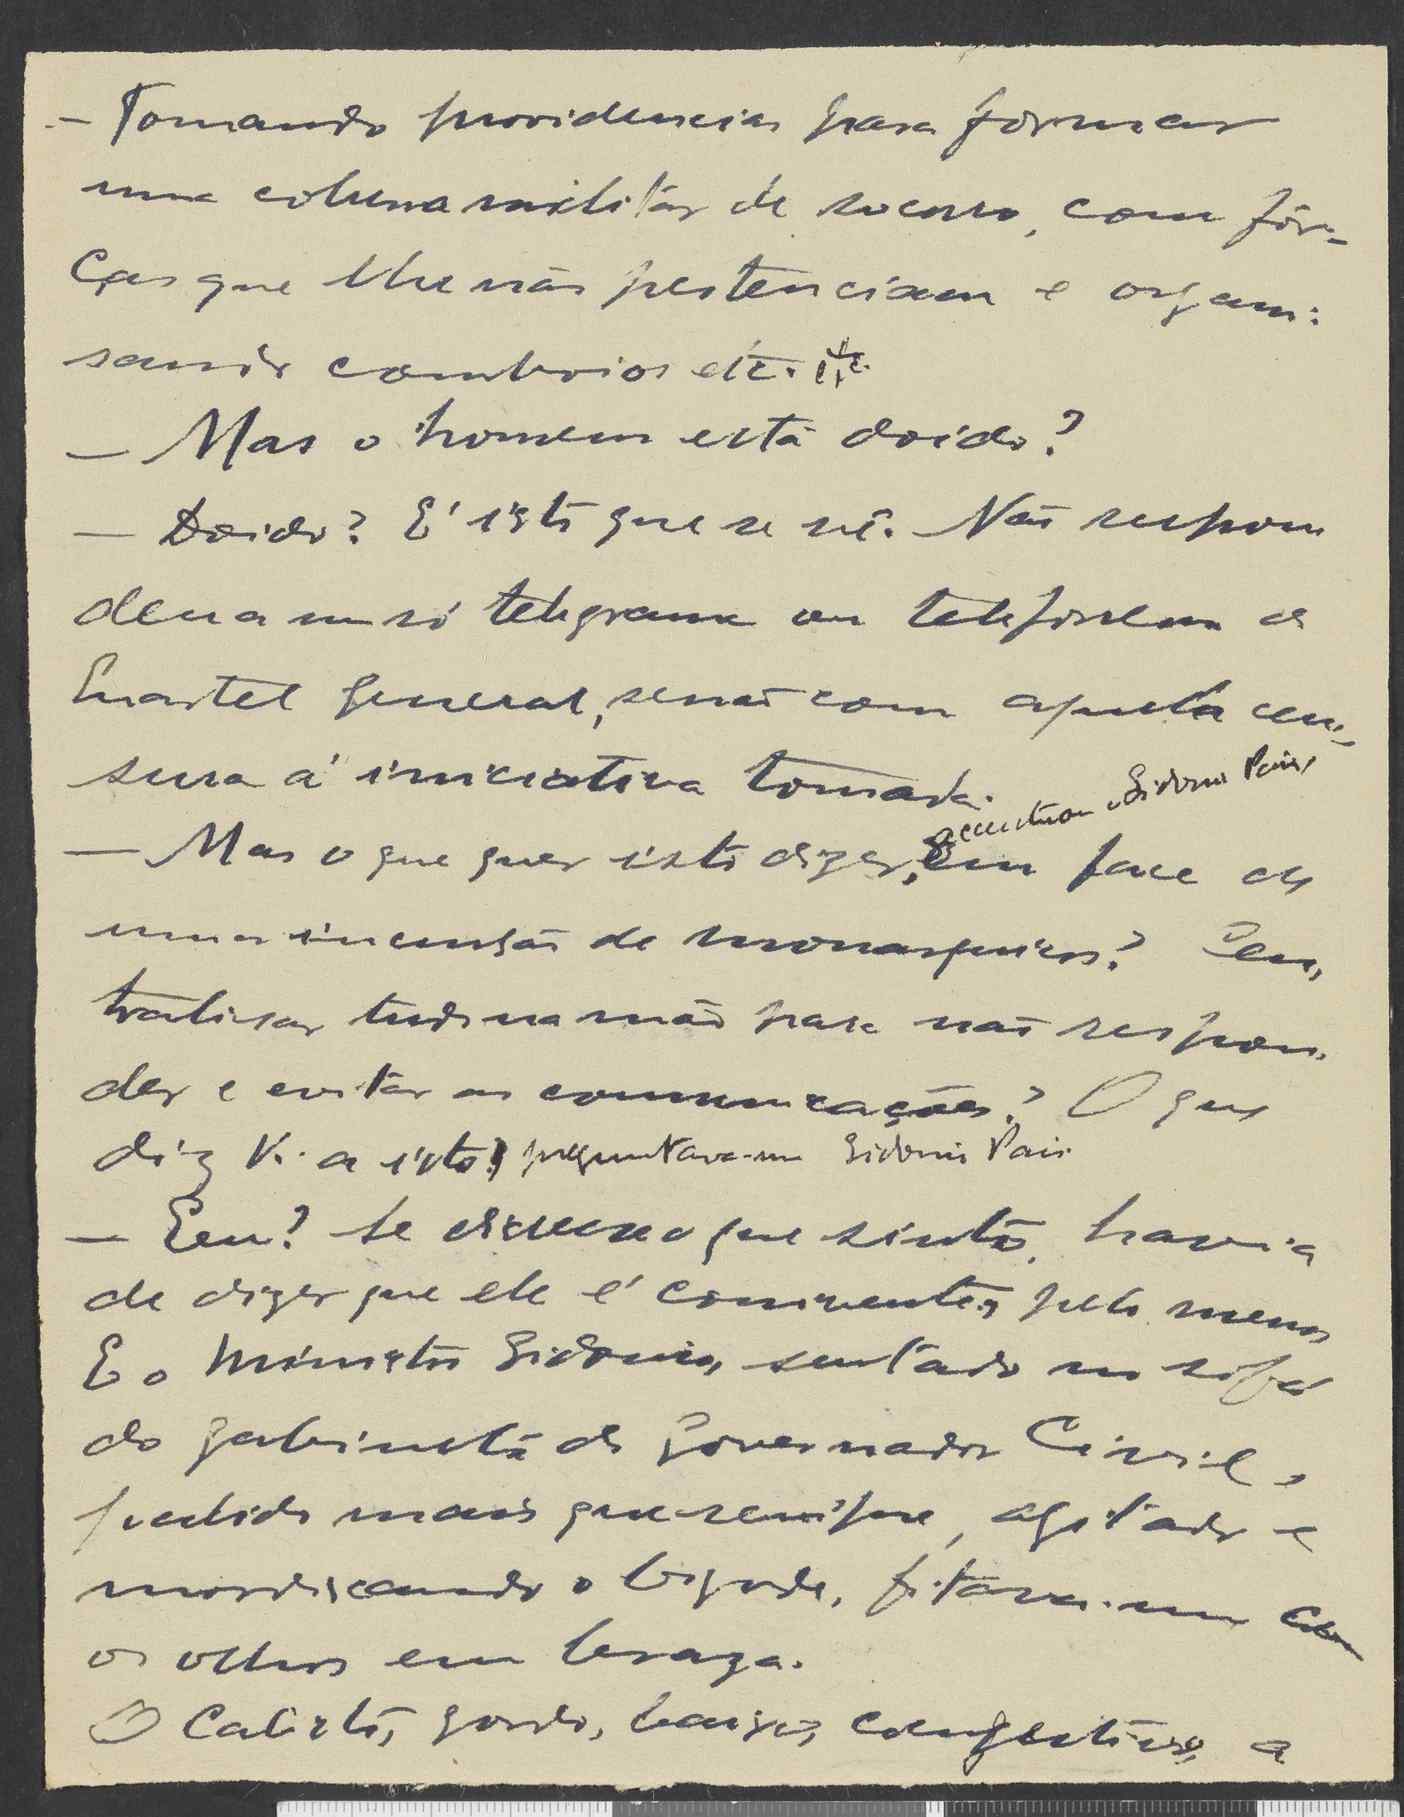 — Tomando providencias para formar
uma coluna militar de socorro, com fôr-
ças que lhe não pertenciam e organi-
sando comboios etc. etc.
— Mas o homem está doido?
— Doido? É isto que se vê. Não respon
dera um só telegrama ou telefonema do
Quartel General, senão com aquela cen-
sura á iniciativa tomada.
— Mas o que quer isto dizer, em face de
acentuou Sidonio Pais,
uma incursão de monarquicos? Cen-
tralisar tudo na mão para não respon-
der e evitar as comunicações? O que
diz V. a isto? preguntava-me Sidonio Pais.
— Eu? Se dissesse o que sinto, havia
de dizer que ele é conivente, pelo menos
E o Ministro Sidonio, sentado no sofá
do gabinete do Governador Civil,
palido mais que sempre, agitado e
mordiscando o bigode, fitava-me com
os olhos em braza.
O Calisto, gordo, baixo, congestivo, a